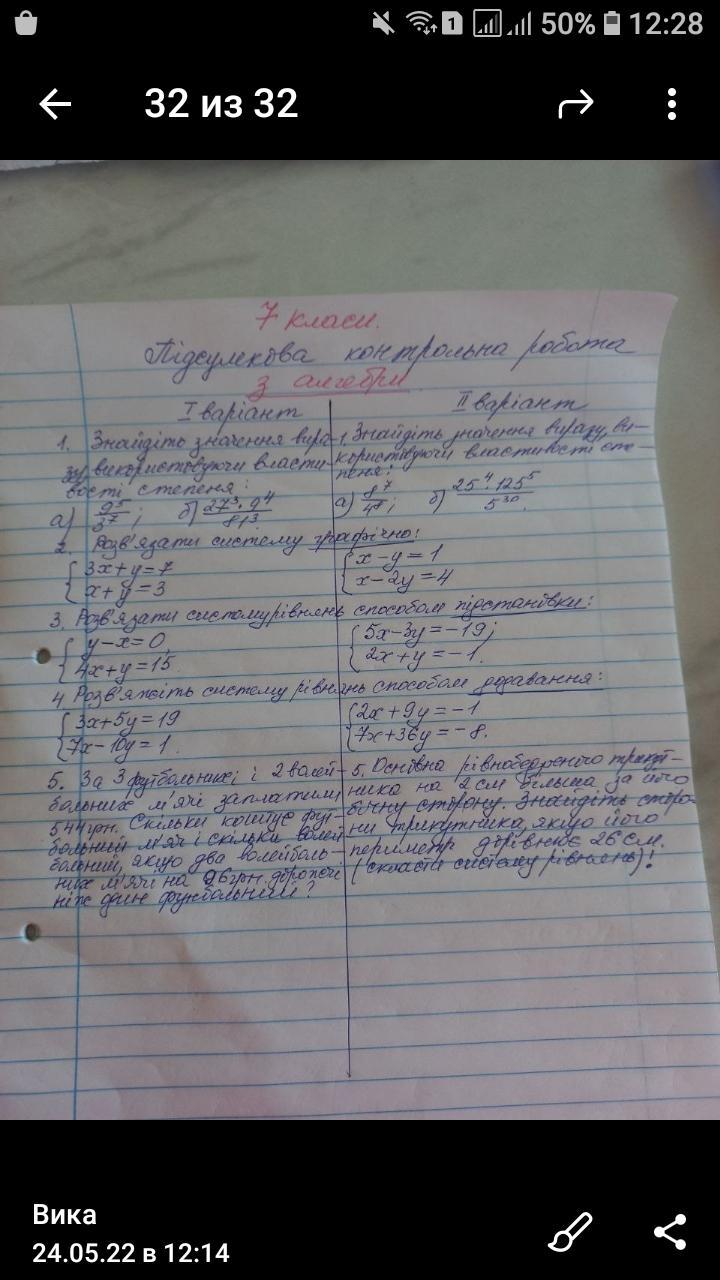 1 50% 12:28
32 из 32
7 класи.
Підсумкова контрольна робота
з алгебри
І варіант
1. Знайдіть значення вира-
зу, використовуючи власти-
вості степеня:
а) 9⁵/3⁷; б) 27³·9⁴/81³
2. Розв'язати систему графічно:
{3x+y=7
{x+y=3
3. Розв'язати систему рівнянь способом підстановки:
{y-x=0,
{4x+y=15
4 Розв'яжіть систему рівнянь способом додавання:
{3x+5y=19
{7x-10y=1.
5. За 3 футбольних і 2 волей-
больних м'ячі заплатили
544грн. Скільки коштує фут-
больний м'яч і скільки волей
больний, якщо два волейболь-
них м'ячі на 96грн. дорожчі
ніж один футбольний?
ІІ варіант
1. Знайдіть значення виразу, ви-
користовуючи властивості сте-
пеня:
а) 8⁷/4⁸; б) 25⁴·125⁵/5³⁰.
{x-y=1
{x-2y=4
{5x-3y=-19;
{2x+y=-1.
{2x+9y=-1
{7x+36y=-8.
5. Основа рівнобедреного трикут-
ника на 2см більша за його
бічну сторону. Знайдіть сторо-
ни трикутника, якщо його
периметр дорівнює 26см.
(скласти систему рівнянь)!
Вика
24.05.22 в 12:14